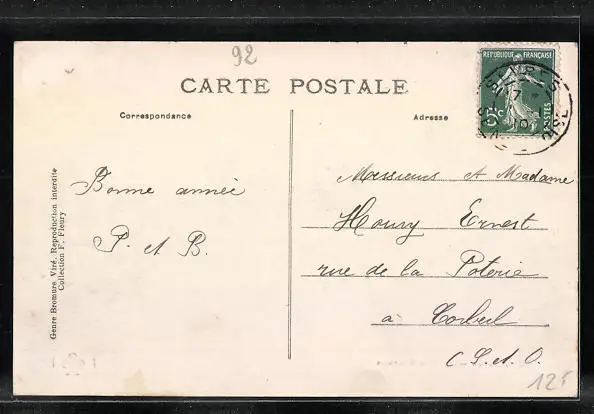 92
CARTE POSTALE
Correspondance
Adresse
RÉPUBLIQUE FRANÇAISE
5c
POSTES
SÈVRES
Genre Bromure Viré. Reproduction interdite
Collection F. Fleury
Bonne année
P. et B.
Messieurs et Madame
Houry Ernest
rue de la Poterie
à Corbeil
(S. et O.
12F